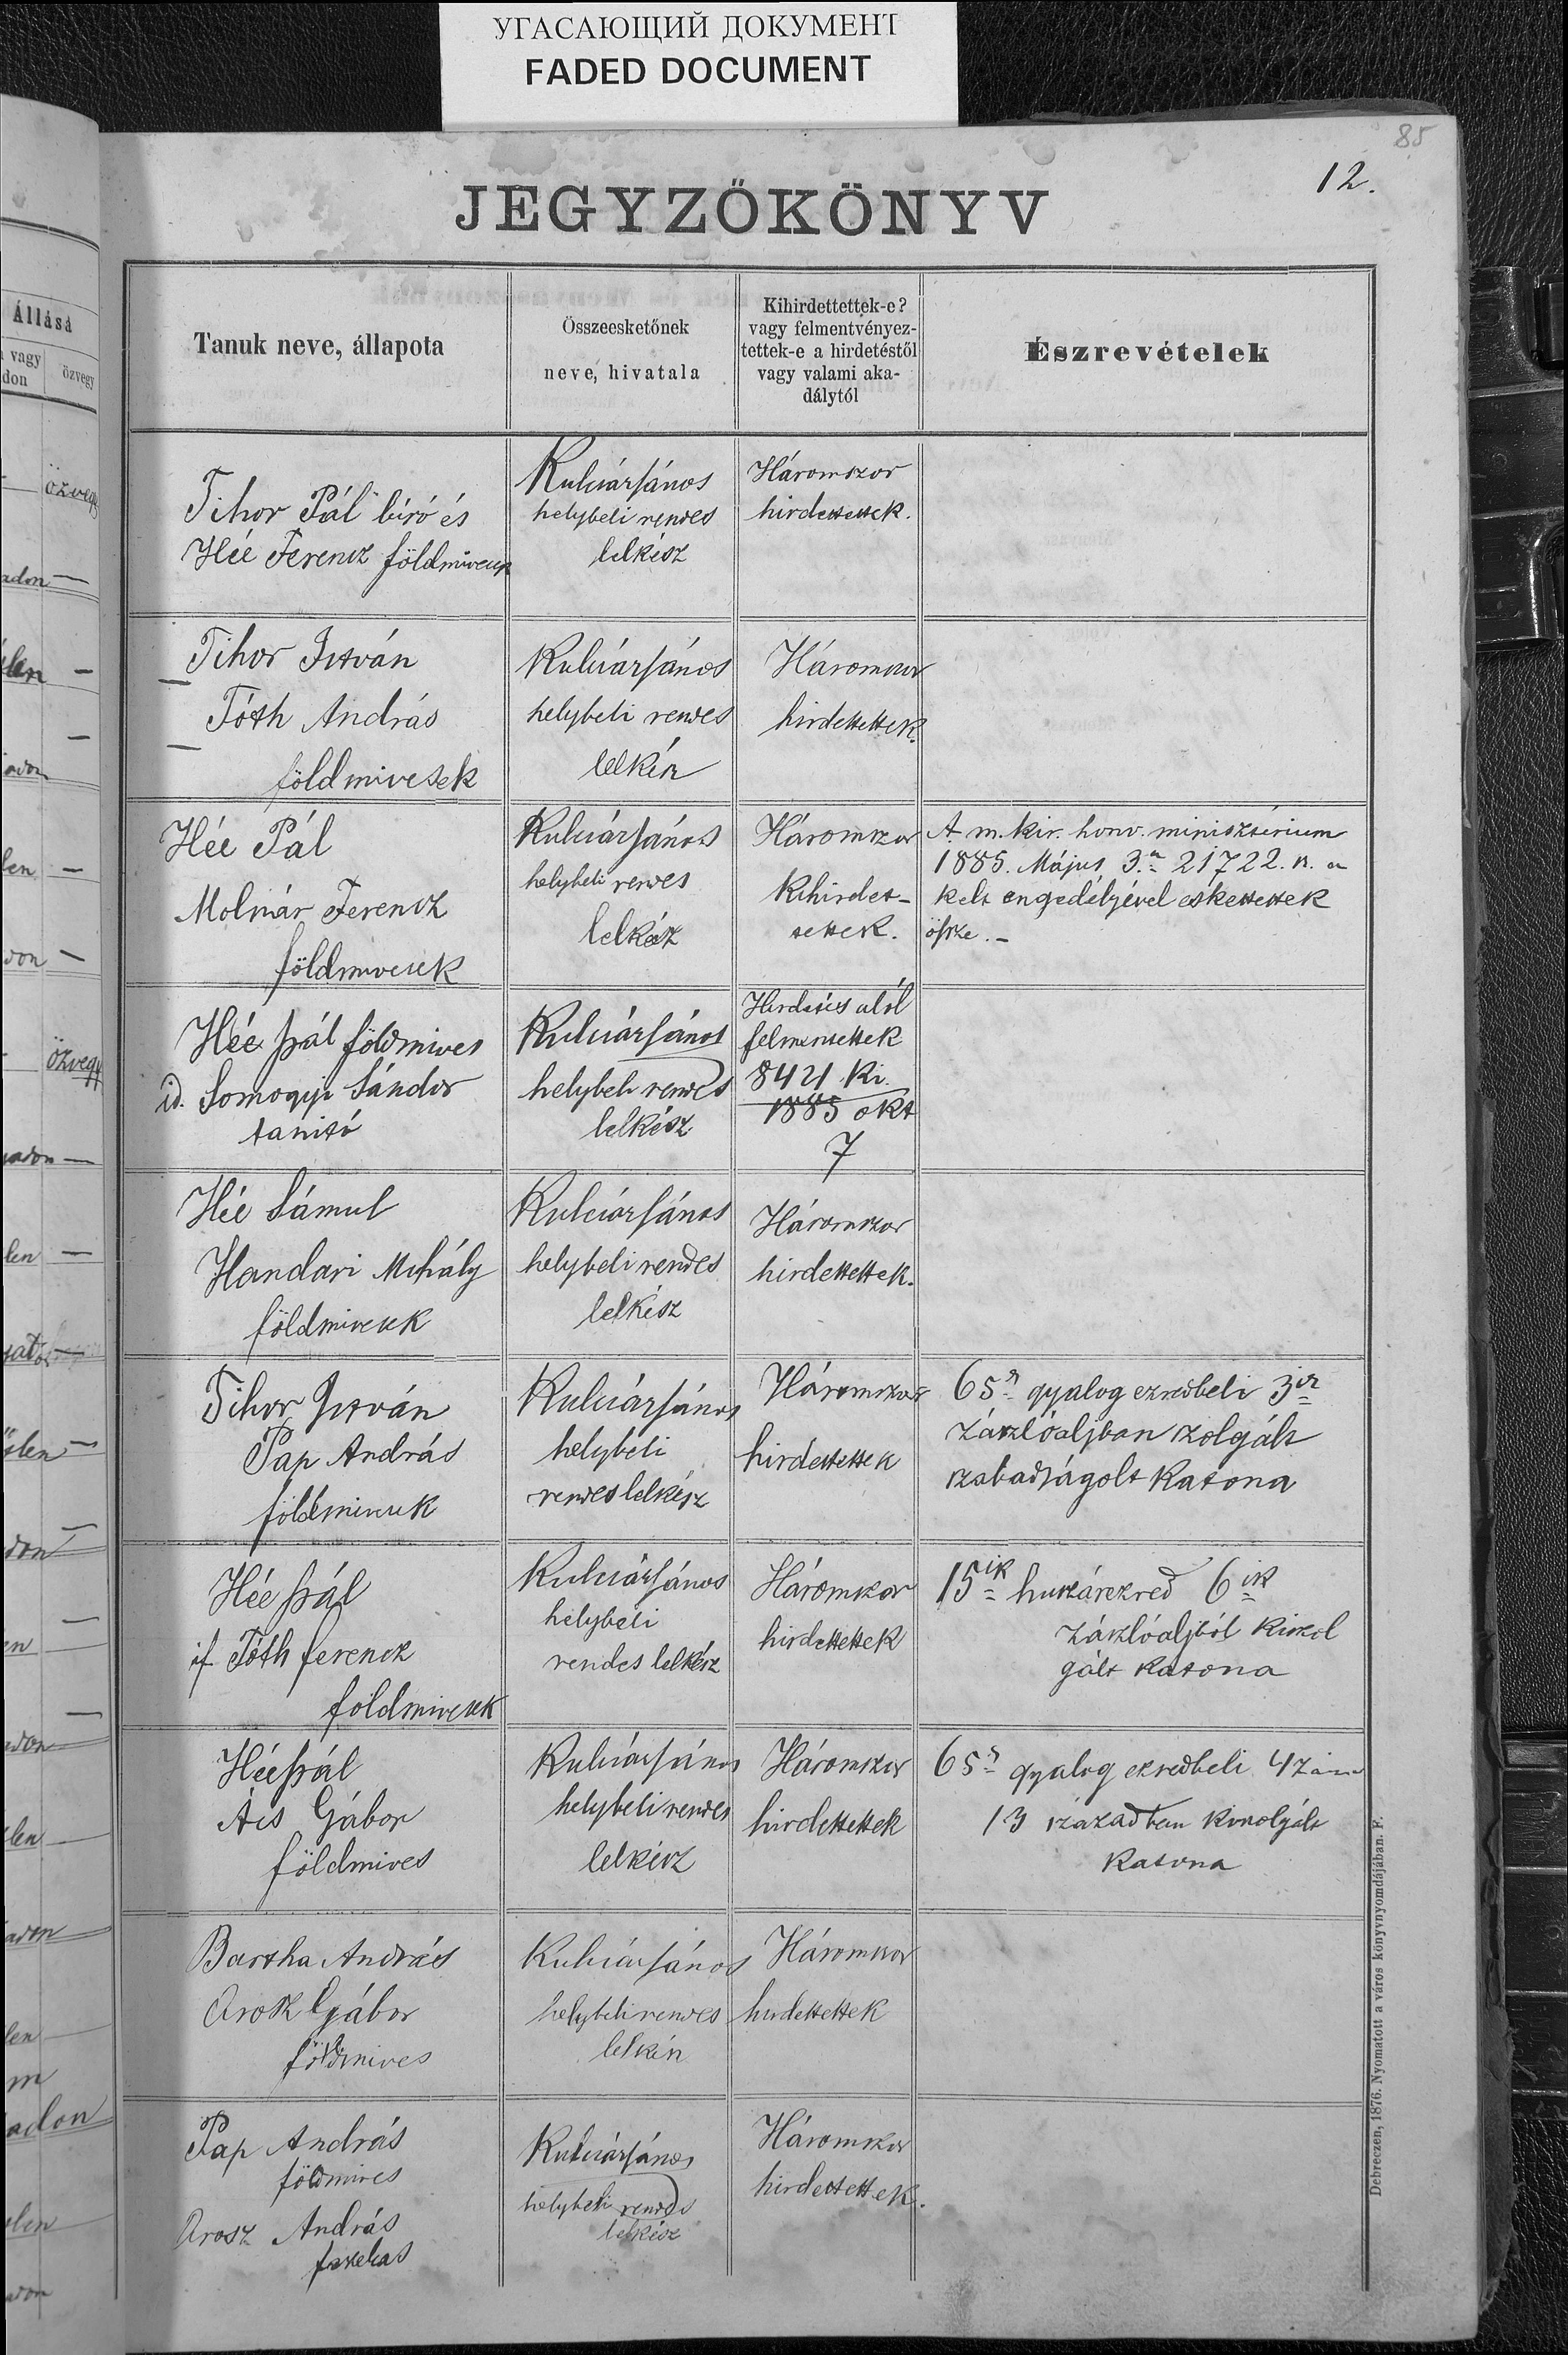 УГАСАЮЩИЙ ДОКУМЕНТ
FADED DOCUMENT
85
12.
JEGYZŐKÖNYV
Állásá
vagy
özvegy
Tanuk neve, állapota
Összeesketőnek
neve, hivatala
Kihirdettettek-e?
vagy felmentvényez-
tettek-e a hirdetéstől
vagy valami aka-
dálytól
Észrevételek
özvegy
Tihor Pál biró és
Hée Ferencz földmivesek
Kulcsár János
helybeli rendes
lelkész
Háromszor
hirdettettek.
Tihor István
Tóth András
földmivesek
Kulcsár János
helybeli rendes
lelkész
Háromszor
hirdettettek.
Hée Pál
Molnár Ferencz
földmivesek
Kulcsár János
helybeli rendes
lelkész
Háromszor
kihirdet-
tettek.
A. m. kir. honv. minisztérium
1885. Május 3.án 21722. sz. a
kelt engedélyével eskettettek
össze. –
özvegy
Hée Pál földmives
id. Somogyi Sándor
tanitó
Kulcsár János
helybeli rendes
lelkész
Hirdetés alól
felmentettek
8421 Ki.
1885 okt
7
Hée Sámul
Handari Mihály
földmivesek
Kulcsár János
helybeli rendes
lelkész
Háromszor
hirdettettek.
Tihor István
Pap András
földmivesek
Kulcsár János
helybeli
rendes lelkész
Háromszor
hirdettettek
65s gyalog ezredbeli 3ik
zászlóaljban szolgált
szabadságolt katona
Hée Pál
if Tóth ferencz
földmivesek
Kulcsár János
helybeli
rendes lelkész
Háromszor
hirdettettek
15ik huszárezred 6ik
zászlóaljból kiszol
gált katona
Hée Pál
Ács Gábor
földmives
Kulcsár János
helybeli rendes
lelkész
Háromszor
hirdettettek
65s gyalog ezredbeli
13 században kiszolgált
katona
Bartha András
Orosz Gábor
földmives
Kulcsár János
helybeli rendes
lelkész
Háromszor
hirdettettek
Pap András
földmives
Orosz András
fazekas
Kulcsár János
helybeli rendes
lelkész
Háromszor
hirdettettek.
Debreczen, 1876. Nyomatott a város könyvnyomdájában. F.